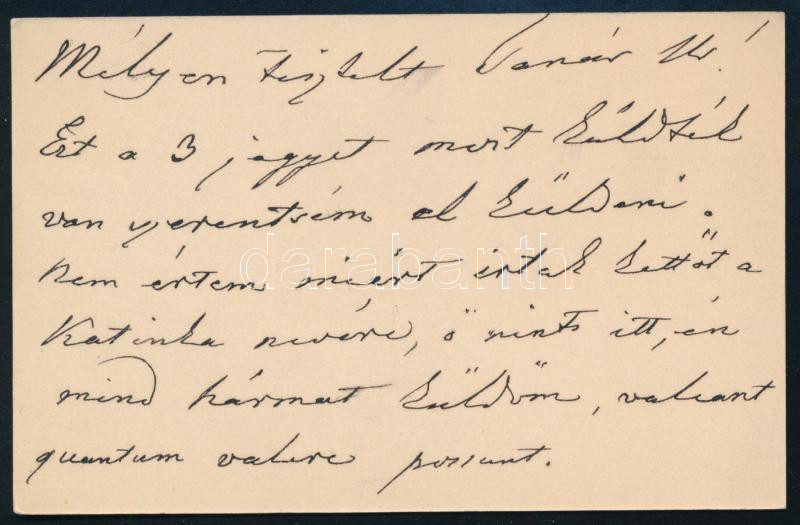 Mélyen tisztelt Tanár Úr!
Ezt a 3 jegyet most küldték
van szerentsém el küldeni.
nem értem miért irtak kettőt a
Katinka nevére, ő nints itt, én
mind hármat küldöm, valeant
quantum valere possunt.
darabanth